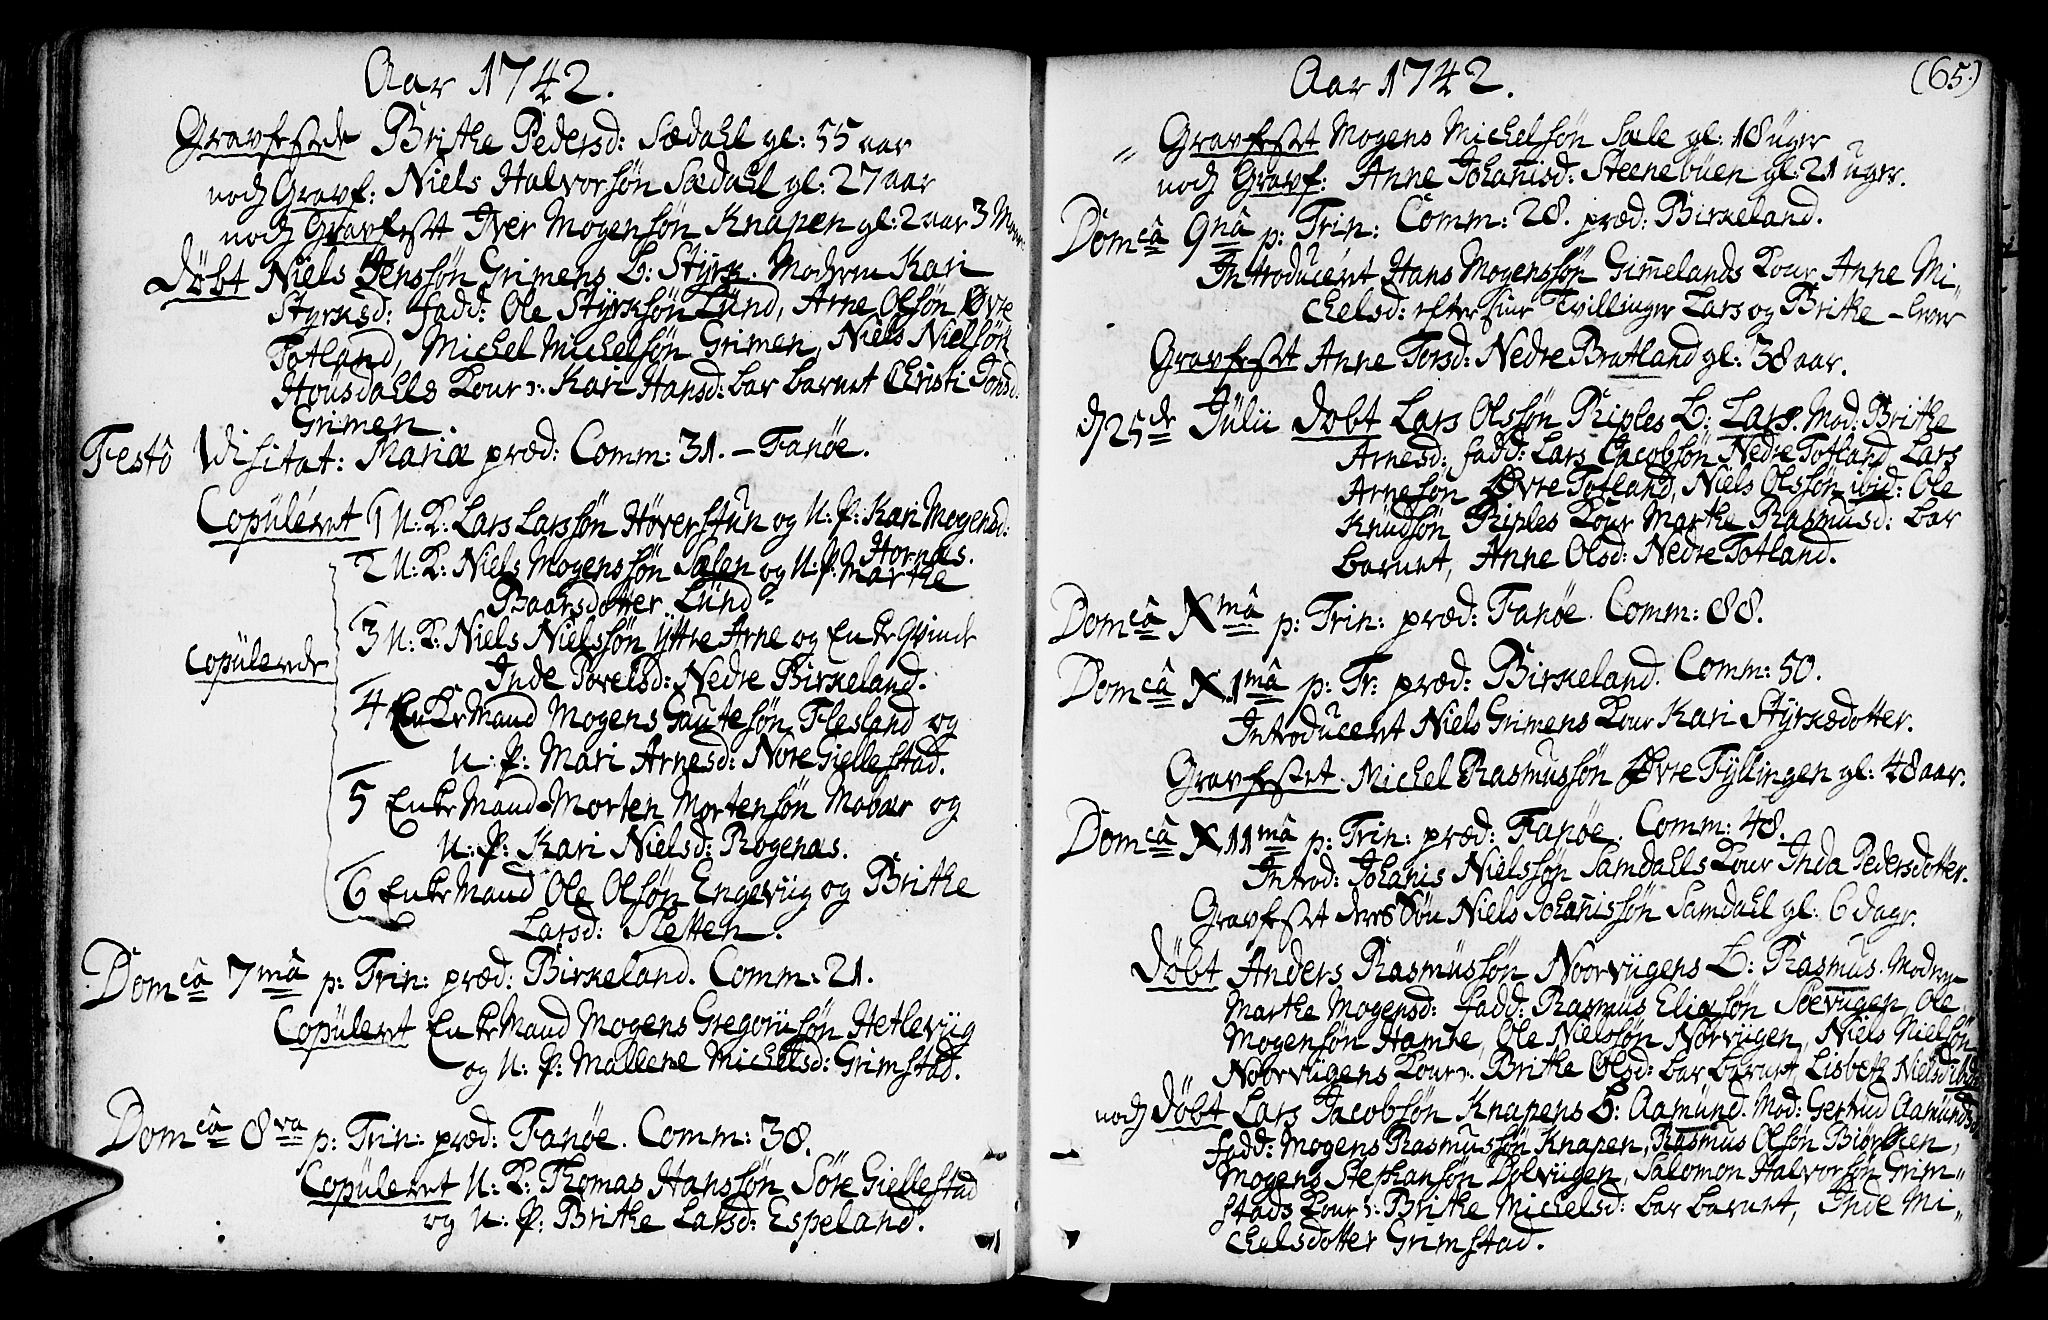 Aar 1742.
Gravfæstede Brithe Pedersd: Sædahl gl: 55 aar
noch Gravf: Niels Halvorsøn Sædahl gl: 27 aar
noch Gravfæstt Iver Mogensøn Knapen gl: 2 aar 3 Maan:
Døbt Niels Jenssøn Grimens B: Styrk. Moderen Kari
Styrksd: fadd: Ole Styrksøn Lund, Arne Olsøn Øvre
Totland, Michel Michelsøn Grimen, Niels Nielsøn
Housdahls Kour: Kari Hansd: bar barnet Christi Tonsd:
Grimen.
Festô Visitat: Mariæ præd: Comm: 31. – Fanøe.
Copuleret 1 U: K: Lars Larssøn Høverstun og U: P: Kari Mogensd:
Hornæs.
2 U: K: Niels Mogenssøn Sælen og U: P: Marthe
Baarsdotter Lund
3 U: K: Niels Nielssøn Yttre Arne og Enke Qvinde
copulerede
Inde Povelsd: Nedre Birkeland.
4 Enke Mand Mogens Gautesøn Flesland og
U: P: Mari Arnesd: Nore Giellestad.
5 Enke Mand Morten Mortensøn Mobær og
U: P: Kari Nielsd: Rogenæs.
6 Enke Mand Ole Olsøn Engeviig og Brithe
Larsd: Sletten.
Domcâ 7mâ p: Trin: præd: Birkeland. Comm: 21.
Copuleret Enke Mand Mogens Gregoriisøn Hetleviig
og U: P: Mallene Michelsd: Grimstad.
Domcâ 8va p: Trin: præd: Fanøe. Comm: 38.
Copuleret U: K: Thomas Hanssøn Søre Giellestad
og U: P: Brithe Larsd: Espeland.
Aar 1742. (65.)
Gravfæstet Mogens Michelsøn Sæle gl: 18 uger
noch Gravf: Anne Johanisd: Steenebuen gl: 21 uger.
Domcâ 9nâ p: Trin: Comm: 28. præd: Birkeland.
Introduceret Hans Mogenssøn Gimelands Kour Anne Mi„
chelsd: efter sine Tvillinger Lars og Brithe –
Gravfæstet Anne Torsd: Nedre Bratland gl: 38 aar.
d 25de Julii Døbt Lars Olssøn Riples B: Lars. Mod: Brithe
Arnesd: fadd: Lars Jacobsøn Nedre Totland, Lars
Arnesøn Øvre Totland, Niels Olssøn ibid: Ole
Knudsøn Riples Kour Marthe Rasmusd: bar
barnet, Anne Olsd: Nedre Totland.
Domcâ Xmâ p: Trin: præd: Fanøe. Comm: 88.
Domcâ X1mâ p: Tr: præd: Birkeland. Comm: 50.
Introduceret Niels Grimens Kour Kari Styrksdotter.
Gravfæstet Michel Rasmussøn Øvre Fyllingen gl: 48 aar.
Domcâ X11mâ p: Trin: præd: Fanøe. Comm: 48.
Introd: Johanis Nielssøn Samdahls Kour Inda Pedersdotter.
Gravfæstet deres Søn Niels Johanissøn Samdahl gl: 6 dage.
Døbt Anders Rasmussøn Noorviigens B: Rasmus. Moderen
Marthe Mogensd: Fadd: Rasmus Eliæsøn Søeviigen, Ole
Mogensøn Hamre, Ole Nielssøn Norviigen, Niels Nielsøn
Noorviigens Kour: Brithe Olsd: bar barnet, Lisbeth Nielsd: ibid:
noch Døbt Lars Jacobsøn Knapens B: Aamund. Mod: Gertrud Aamundsd:
fadd: Mogens Rasmussøn Knapen, Rasmus Olsøn Biørkhen,
Mogens Stephansøn Dolviigen, Salomon Halvorsøn Grim„
stads Kour: Brithe Michelsd: bar barnet, Inde Mi„
chelsdotter Grimstad.